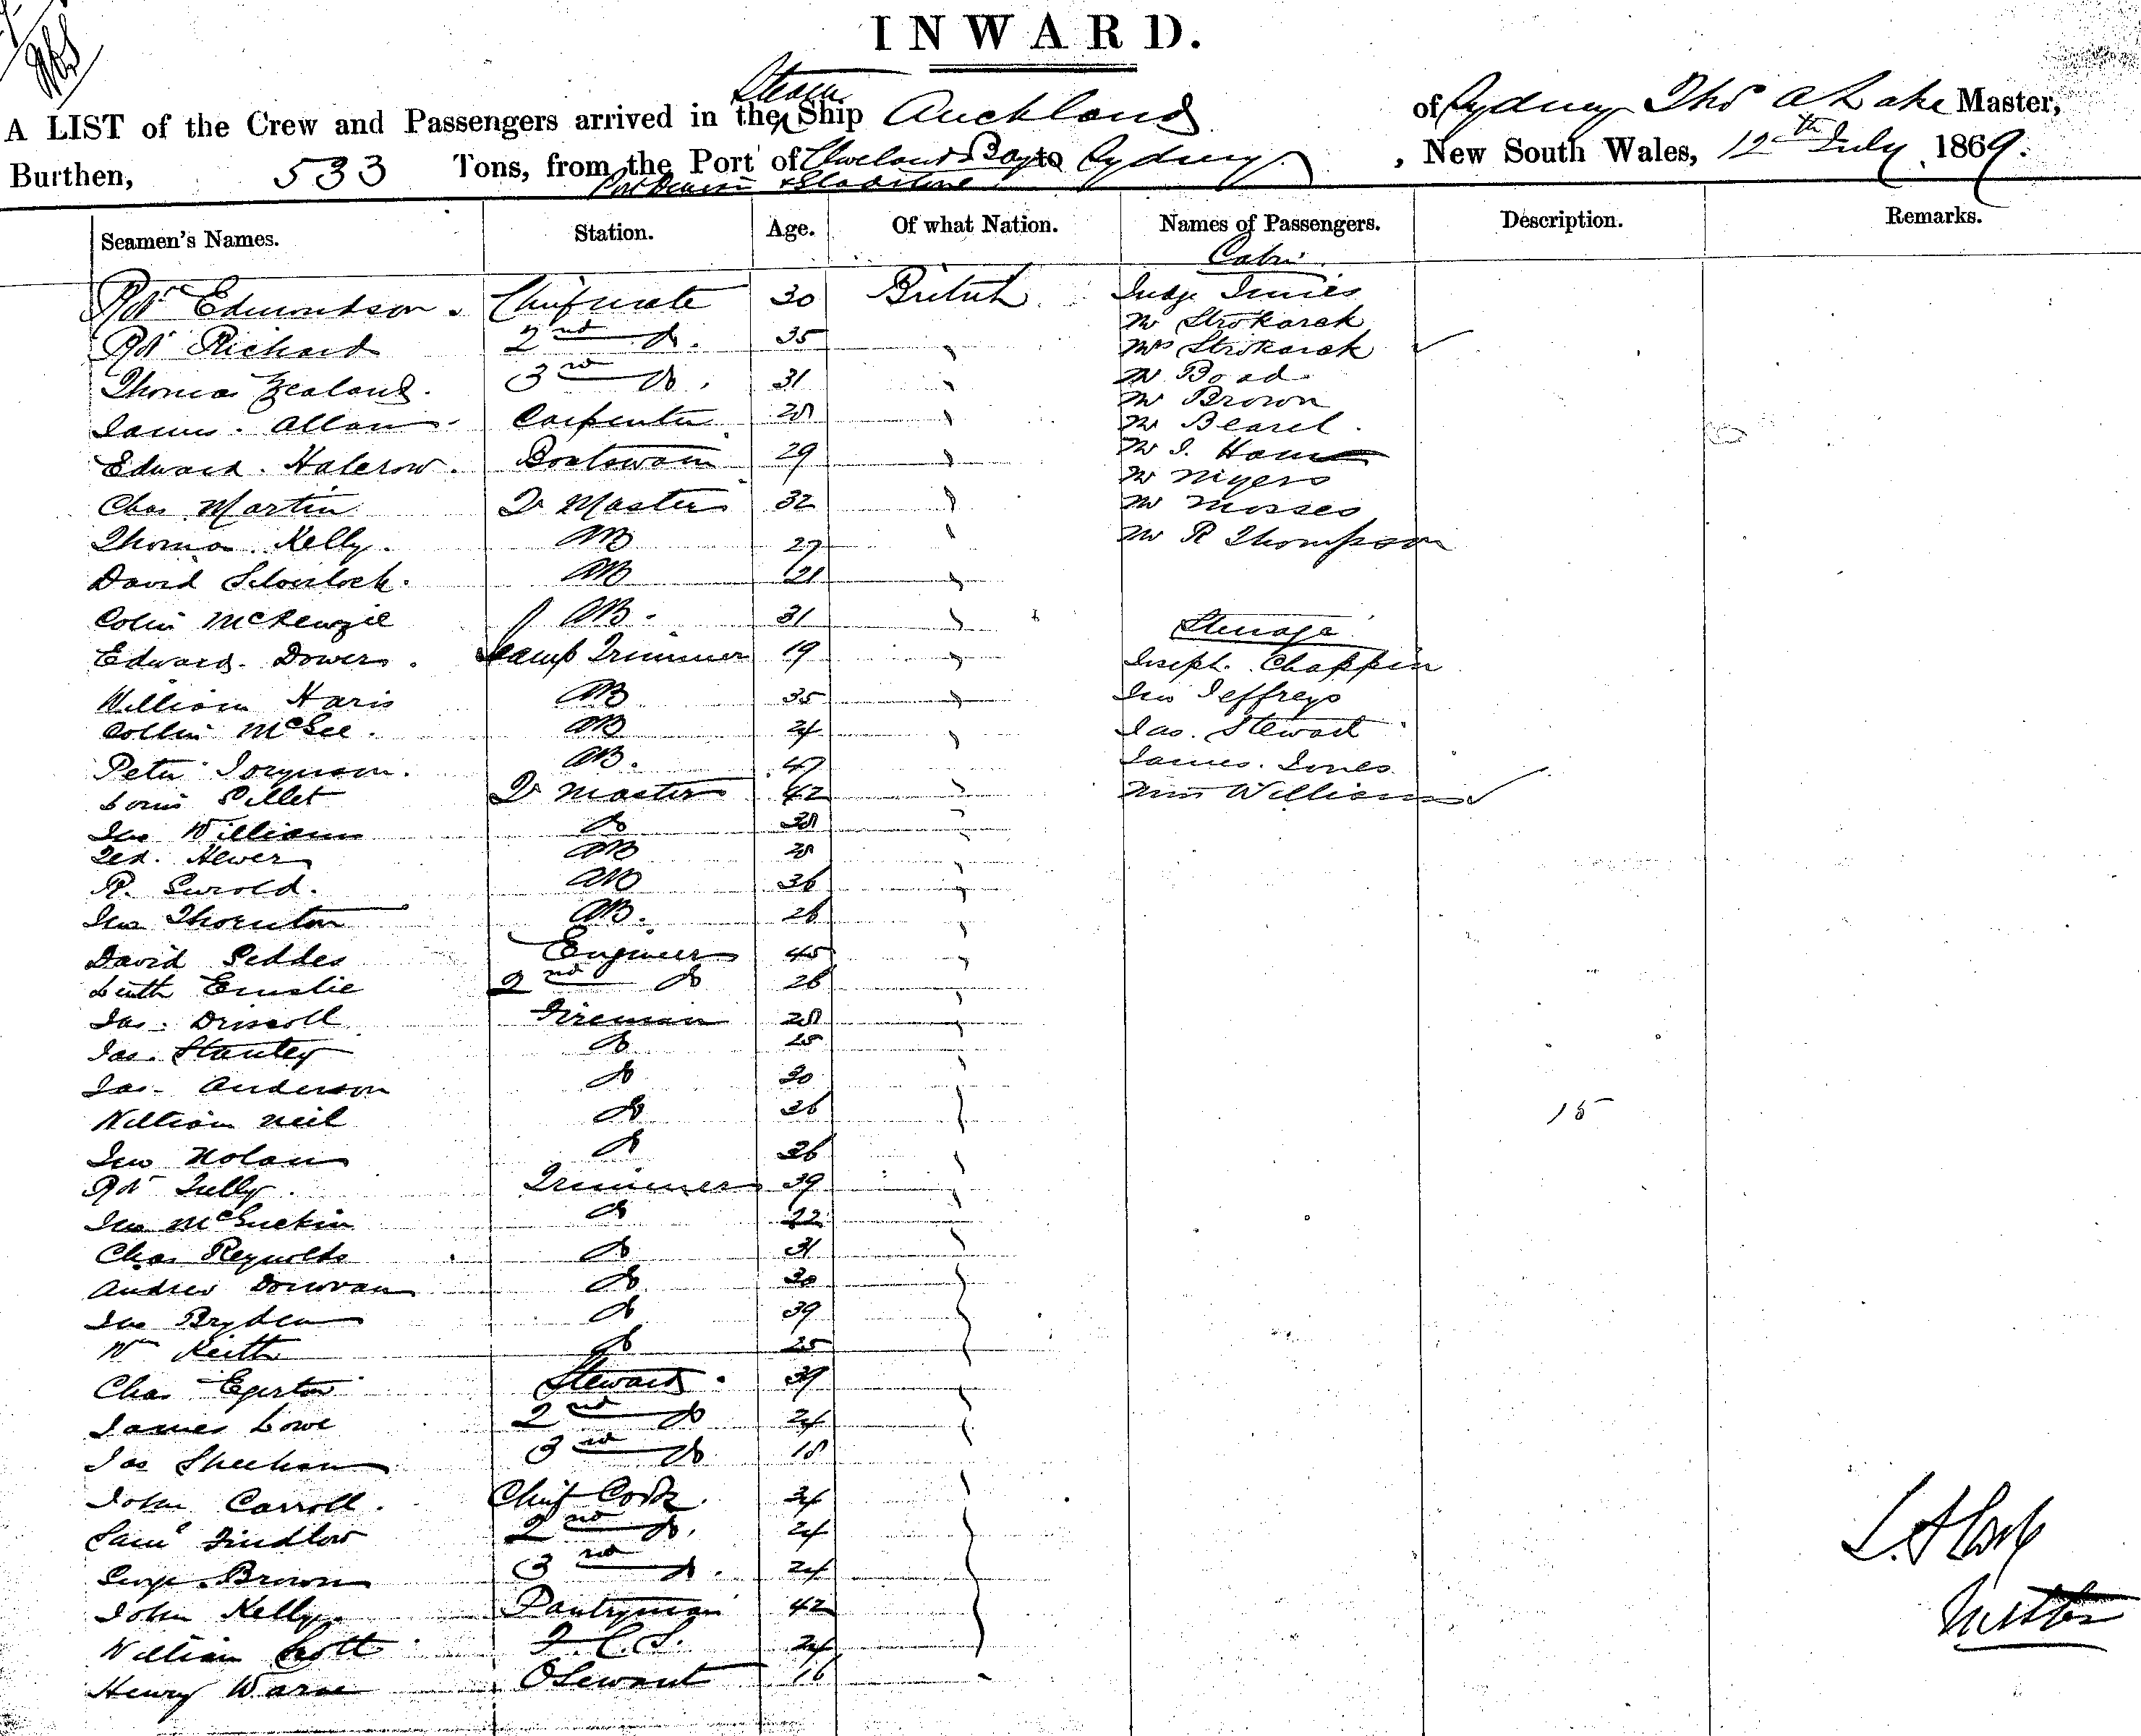 INWARD.
Steam
A LIST of the Crew and Passengers arrived in the Ship Auckland of Sydney Thos A Lake Master,
Burthen, 533 Tons, from the Port of Cleveland Bay to Sydney, New South Wales, 12th July 1869.
Port Denison & Gladstone
Seamen's Names. Station. Age. Of what Nation. Names of Passengers. Description. Remarks.
Cabin
Rot Edmondson. Chief mate 30 British Judge Innies
Mr Strokarck
Rot Richard 2nd Do. 35 Mrs Strokarck
Thomas Zealand. 3rd Do. 31 Mr Boad
Mr Brown
James. Allan Carpenter 28 Mr Bearel.
Edward. Halcrow. Boatswain 29 Mr J.
Mr Myers
Chas Martin Qr Master 32 Mr Mosses
Thomas Kelly. AB 27 Mr R Thompson
David AB 21
Colin McKenzie AB. 31 Steerage
Edward. Dowers. Lamp Trimmer 19 Joseph. Chappin
William Haris AB 35 Jno Jeffreys
Collin McGee. AB 24 Jas. Stewart
Peter AB. 47 James. Jones
Louis Pillet Qr master 42 Williams
Jno Williams Do 38
Hewer AB 28
R. AB 36
Jno Thornton AB. 26
David Peddes Engineer 45
Leith Emslie 2nd Do 26
Jas. Driscoll Fireman 28
Jas. Stanley Do 25
Jas. Anderson Do 30
William Neil Do 26 15
Jno Nolan Do 26
Rot Tully. Trimmer 39
Jno McGuckin Do 22
Chas Reynolds Do 31
Andrew Donovan Do 30
Jno Bryden Do 39
Wm Keith Do 25
Chas Egerton Steward. 39
James Lowe 2nd Do 24
Jas Sheehan 3rd Do 18
John Carroll. Chief Cook. 34
Saml Findlow 2nd Do. 24
George. Brown 3rd Do. 24
John Kelly. Pantryman 42
William Scott F. C. S. 24
Henry Warne 16
Master